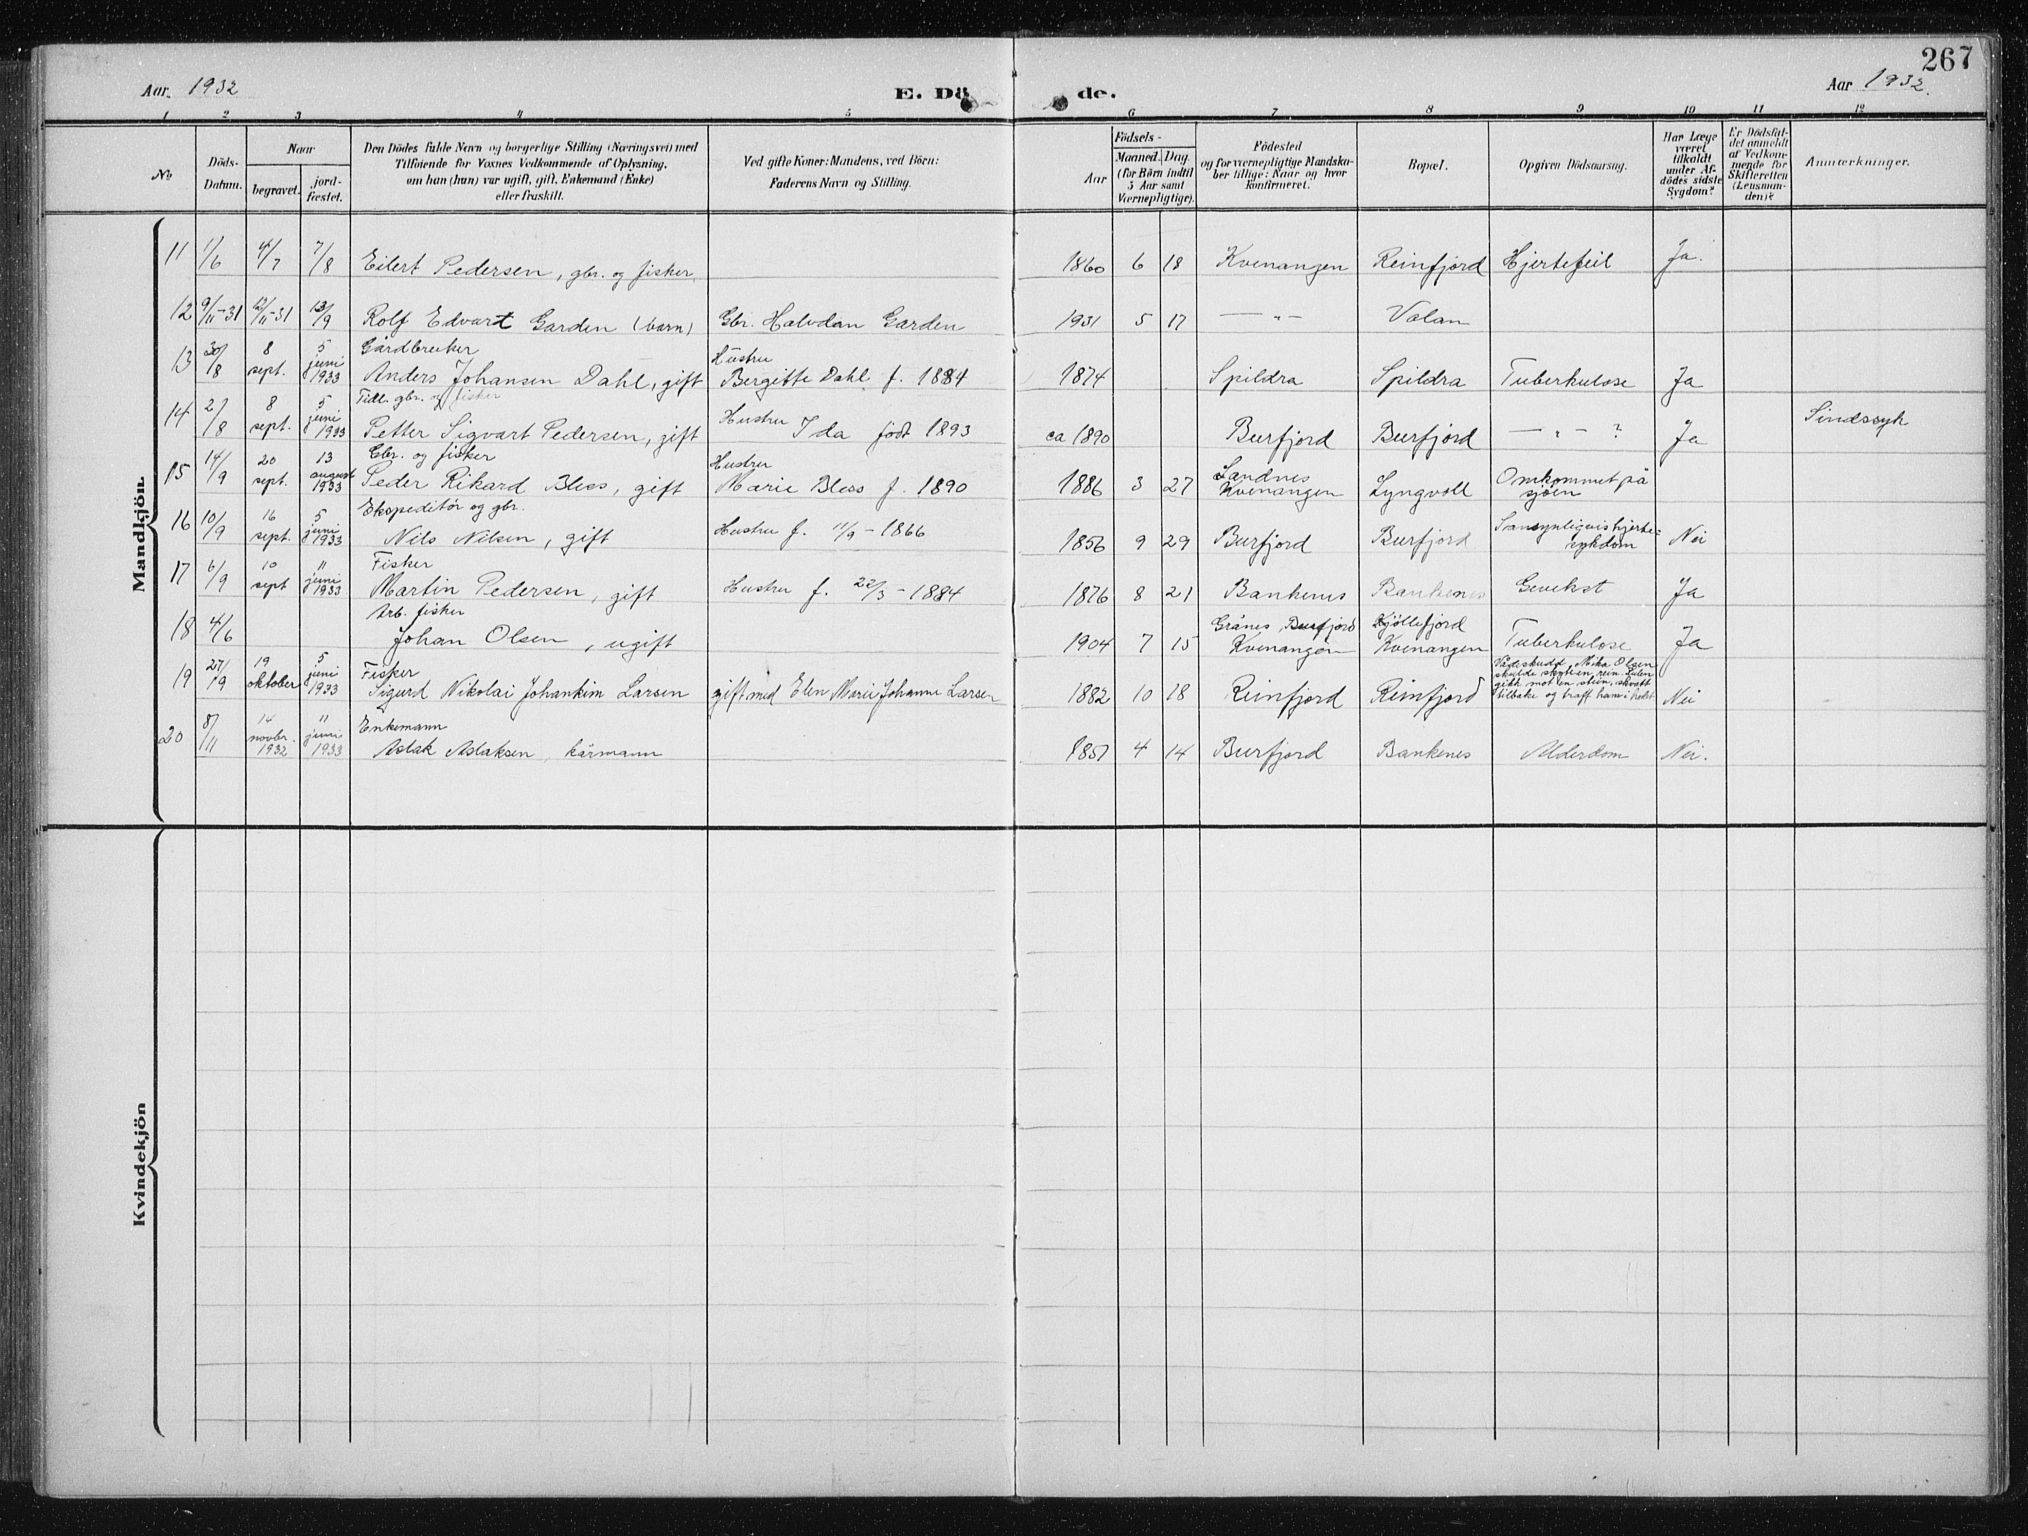 267
Aar 1932
E. Dö
de.
Aar 1932.
1 2 3 4 5 6 7 8 9 10 11 12
No
Döds-
Datum.
Naar
begravet.
jord-
fæstet.
Den Dödes fulde Navn og borgerlige Stilling (Næringsvei) med
Tilföiende for Voxnes Vedkommende af Oplysning,
om han (hun) var ugift, gift, Enkemand (Enke)
eller fraskilt.
Ved gifte Koner: Mandens, ved Börn:
Faderens Navn og Stilling.
Födsels-
Aar
Maaned. Dag.
(for Börn indtil
5 Aar samt
Værnepligtige).
Födested
og for værnepligtige Mandska-
ber tillige: Naar og hvor
konfirmeret.
Bopæl.
Opgiven Dödsaarsag.
Har Læge
været
tilkaldt
under Af-
dödes sidste
Sygdom?
Er Dödsfal-
det anmeldt
af Vedkom-
mende for
Skifteretten
(Lensman-
den)?
Anmærkninger.
Mandkjön.
11 1/6 4/7 7/8 Eilert Pedersen, gbr. og fisker. 1860 6 18 Kvenangen Reinfjord Hjertefeil Ja.
12 9/11-31 12/11-31 13/9 Rolf Edvart Garden (barn) Gbr. Halvdan Garden 1931 5 17 — " — Valan
Gårdbruker Hustru
13 30/8 8 sept. 5 juni 1933 Anders Johansen Dahl, gift Bergitte Dahl f. 1884 1874 Spildra Spildra Tuberkulose Ja
Tidl. gbr. og fisker
14 2/8 8 sept. 5 juni 1933 Petter Sigvart Pedersen, gift Hustru Ida født 1893 ca 1890 Burfjord Burfjord — " — ? Ja Sindssyk
Gbr. og fisker Hustru Landnes
15 14/9 20 sept. 13 august 1933 Peder Rikard Bless, gift Marie Bless f. 1890 1886 3 27 Kvenangen Lyngvoll Omkommet på
sjøen
Ekspeditør og gbr.
16 10/9 16 sept. 5 juni 1933 Nils Nilsen, gift Hustru f. 11/9 - 1866 1856 9 29 Burfjord Burfjord Sansynligvis hjerte-
sykdom Nei
Fisker
17 6/9 10 sept 11 juni 1933 Martin Pedersen, gift Hustru f. 22/3 - 1884 1876 8 21 Bankenes Bankenes Ja
Arb. fisker Burfjord Kjøllefjord
18 4/6 Johan Olsen, ugift 1904 7 15 Kvenangen Kvenangen Tuberkulose Ja
Fisker
19 27/9 19 oktober 5 juni 1933 Sigurd Nikolai Johankim Larsen gift med Elen Marie Johanne Larsen 1882 10 18 Reinfjord Reinfjord Vådeskudd, Mika Olsen
skulde skyte en rein. Kulen
gikk mot en stein, skvatt
tilbake og traff ham i Nei
Enkemann
20 8/11 14 novbr. 1932 11 juni 1933 Aslak Aslaksen, kårmann 1851 4 14 Burfjord Bankenes Alderdom Nei.
Kvindekjön